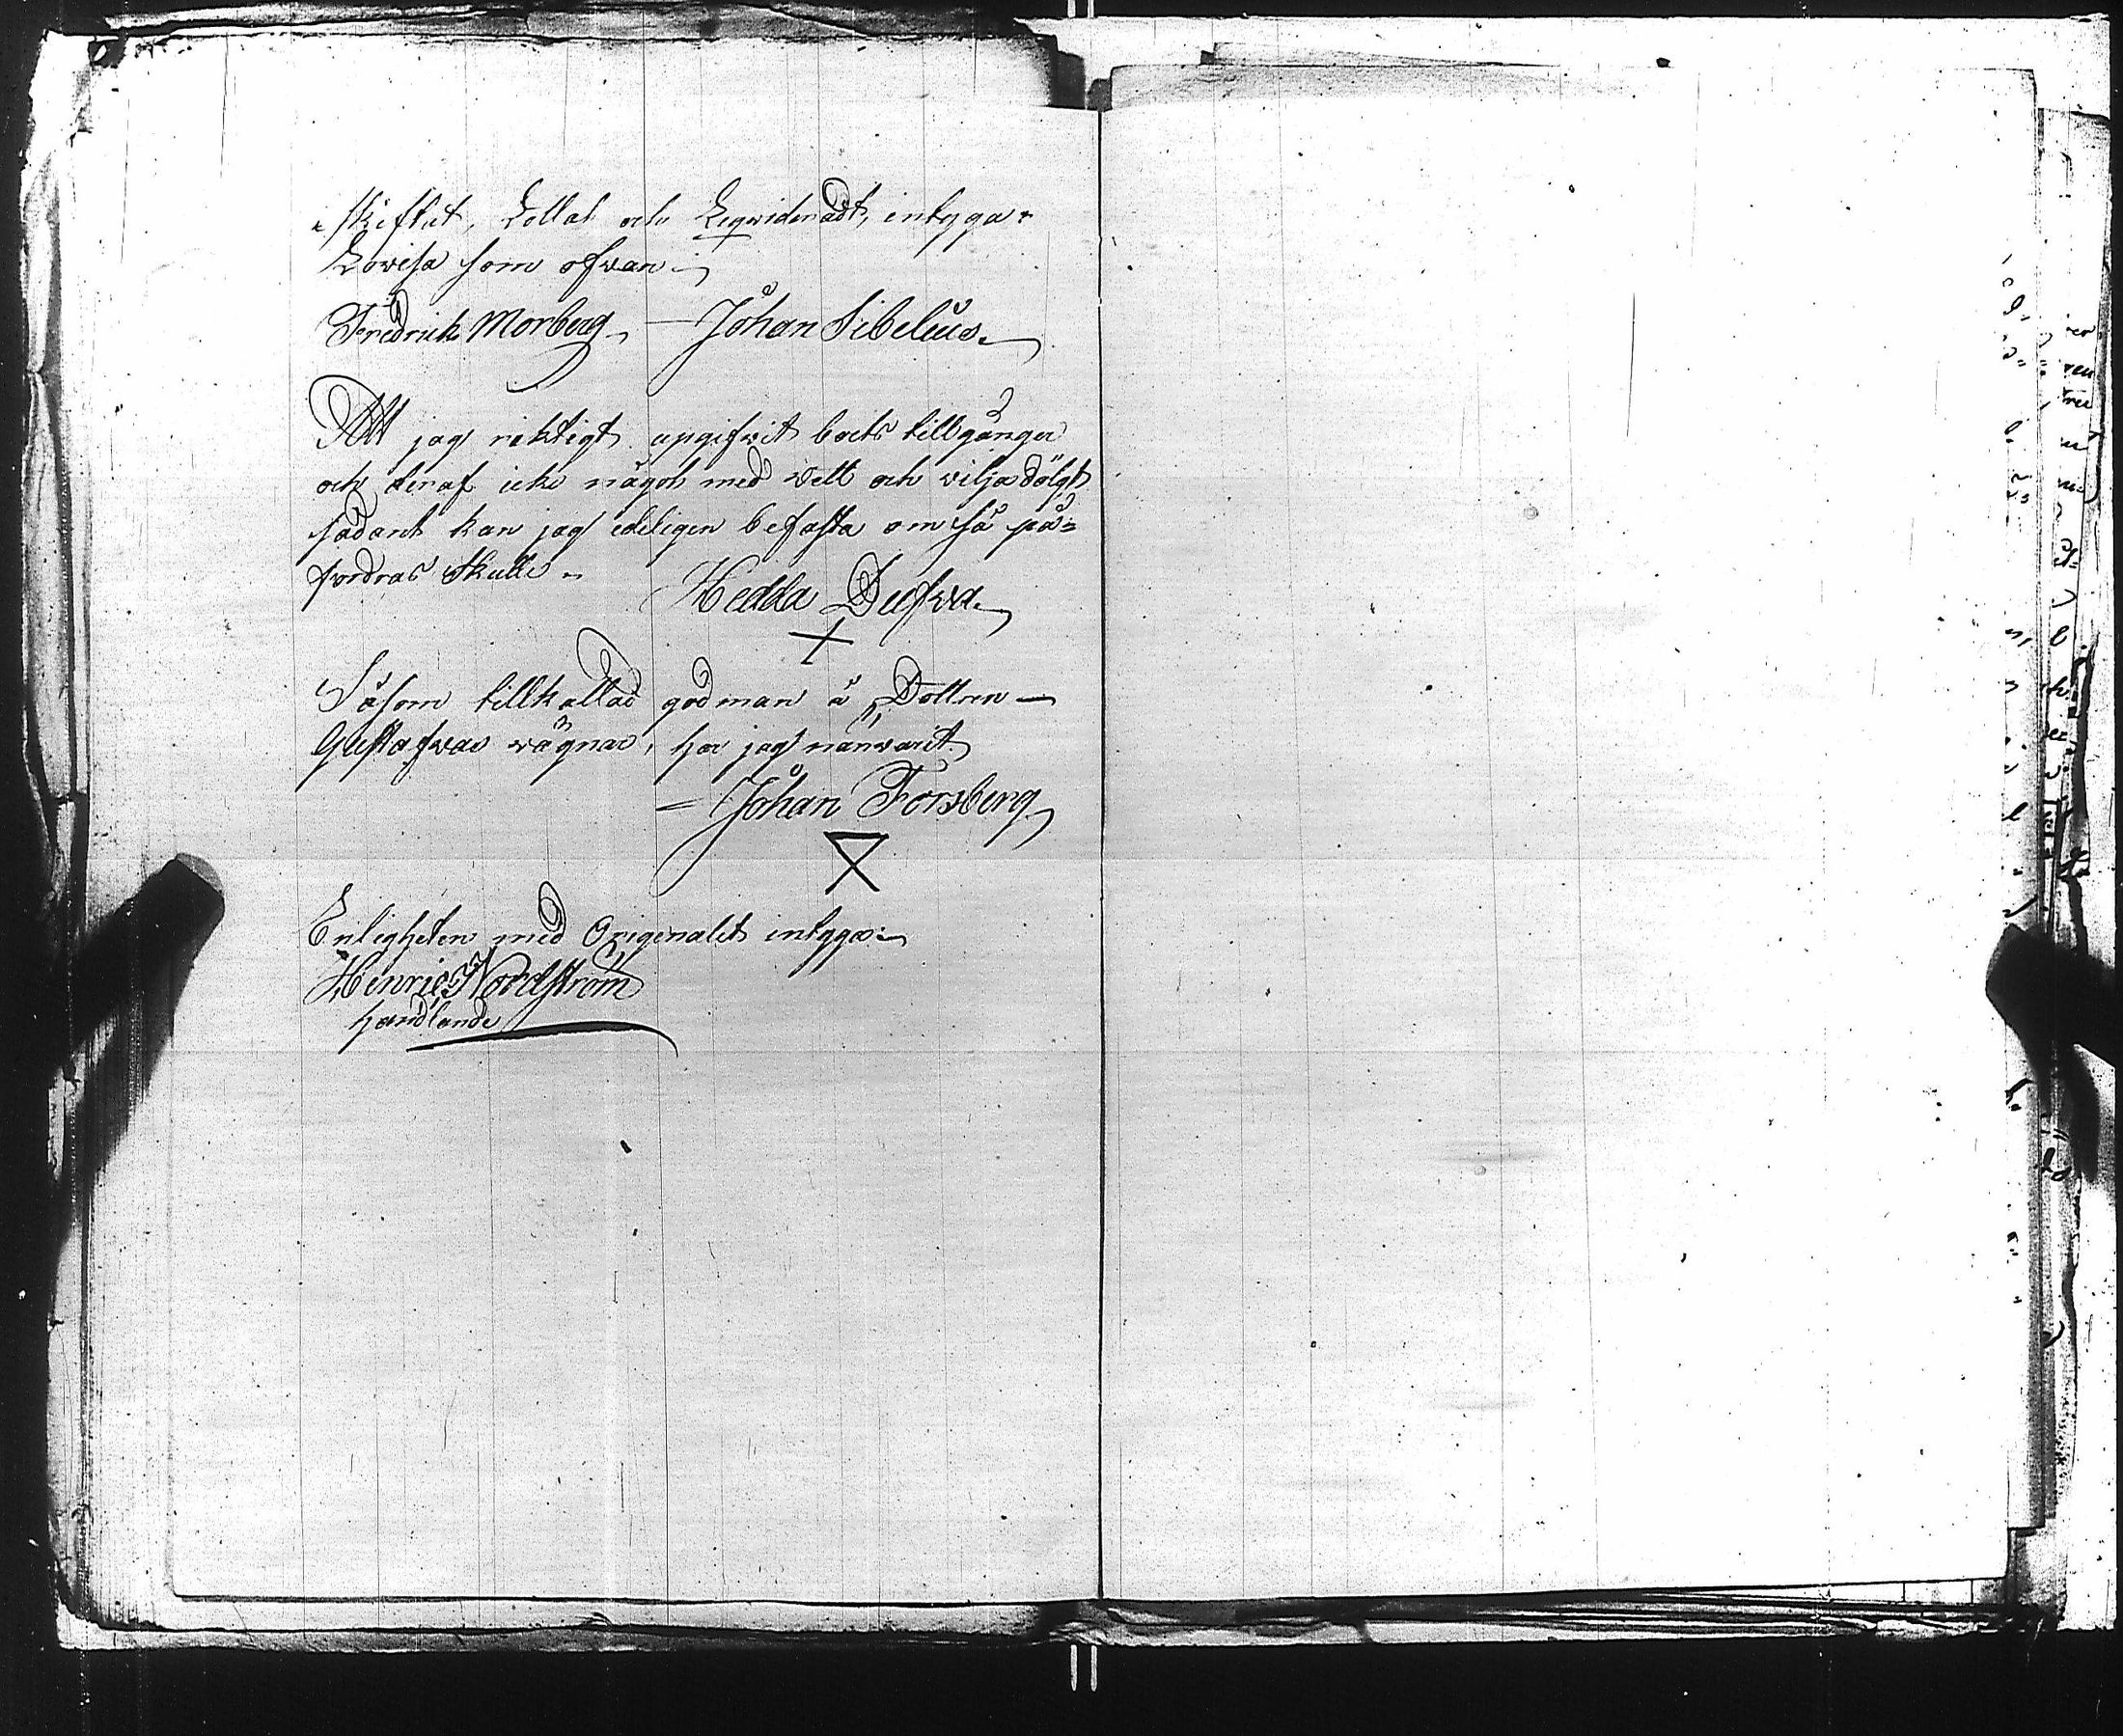 skiftet, Lottat och Liqwideradt, intyga:
Lovisa som ofwan.
Fredrick Morberg Johan Sibelius.
Att jag riktigt upgifwit boets tillgångar
och deraf icke något med wett och vilja dölgt
sådant kan jag edeligen befästa om så på=
fordras skulle.
Hedda Dufva.
X
Såsom tillkallad godman å Dottren
Gustafvas vägnar, har jag närwarit
Johan Forsberg
Enligheten med Originalet intygar
Henric Nordström
handlande